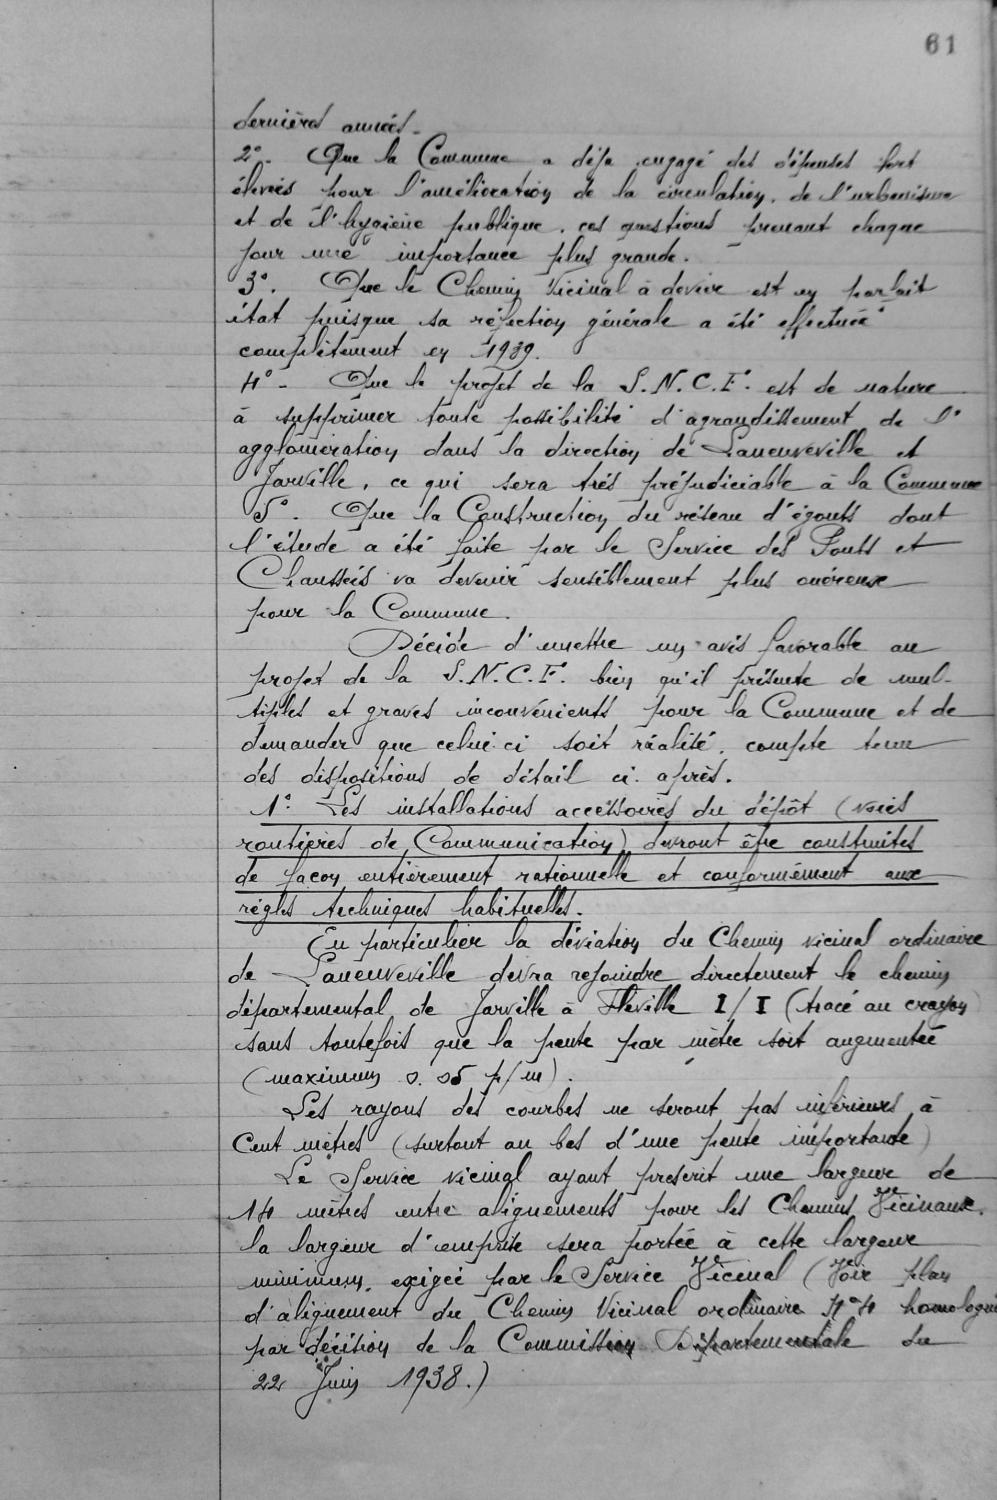 61
dernières années.
2°. Que la Commune a déja engagé des dépenses fort
élevées pour l'amélioration de la circulation, de l'urbanisme
et de l'hygiène publique, ces questions prenant chaque
jour une importance plus grande.
3°. Que le Chemin Vicinal à dévier est en parfait
état puisque sa réfection générale a été effectuée
complètement en 1939.
4°- Que le projet de la S.N.C.F. est de nature
à supprimer toute possibilité d'agrandissement de l'
agglomération dans la direction de Laneuveville et
Jarville, ce qui sera très préjudiciable à la Commune
5°. Que la Construction du réseau d'égouts dont
l'étude a été faite par le Service des Ponts et
Chaussées va devenir sensiblement plus onéreuse
pour la Commune.
Décide d'émettre un avis favorable au
projet de la S.N.C.F. bien qu'il présente de mul-
tiples et graves inconvénients pour la Commune et de
demander que celui-ci soit réalisé, compte tenu
des dispositions de détail ci-après.
1° Les installations accessoires du dépôt (voies
routières de Communication) devront être construites
de façon entièrement rationnelle et conformément aux
règles techniques habituelles.
En particulier la déviation du Chemin vicinal ordinaire
de Laneuveville devra rejoindre directement le chemin
départemental de Jarville à Fléville I/I (tracé au crayon)
sans toutefois que la pente par mètre soit augmentée
(maximum 0.05 p/m).
Les rayons des courbes ne seront pas inférieurs à
Cent mètres (surtout au bas d'une pente importante)
Le Service vicinal ayant prescrit une largeur de
14 mètres entre alignements pour les Chemins Vicinaux,
la largeur d'emprise sera portée à cette largeur
minimum, exigée par le Service Vicinal (Voir plan
d'alignement du Chemin Vicinal ordinaire N°4 homologué
par décision de la Commission Départementale du
22 Juin 1938.)